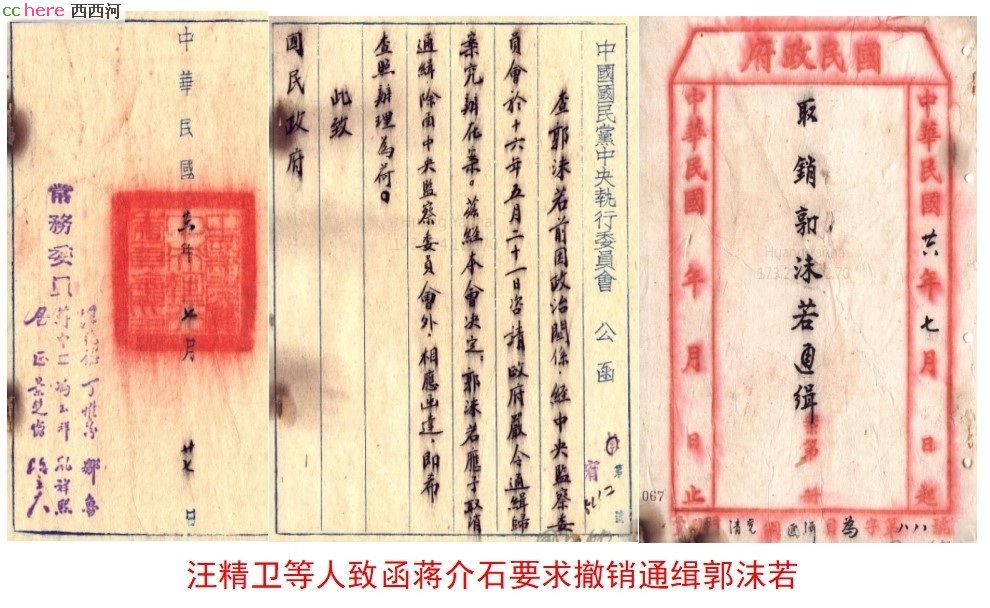 cchere 西西河
國民政府
中華民國廿六年七月 日起
取銷郭沫若通緝
第 冊
中華民國 年 月 日止
067
中國國民黨中央執行委員會 公函
查郭沫若前因政治關係,經中央監察委
員會於十六年五月二十一日咨請政府嚴令通緝歸
案究辦在案。茲經本會決定,郭沫若應予取消
通緝除函中央監察委員會外,相應函達,即希
查照辦理為荷。
此致
國民政府
中華民國 廿六年 七月 廿七日
常務委員
汪兆銘 丁惟汾 鄒魯
蔣中正 馮玉祥 孔祥熙
居正 葉楚傖
汪精卫等人致函蒋介石要求撤销通缉郭沫若